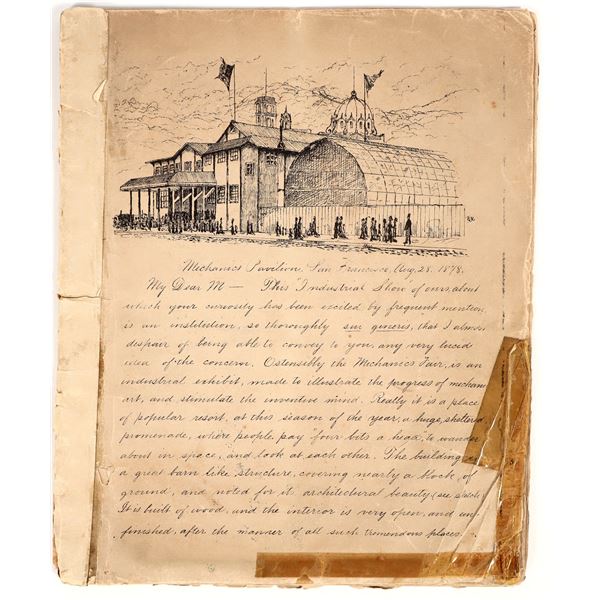 Mechanics Pavilion, San Francisco, Aug. 28. 1878.
My Dear M — This Industrial Show of ours, about
which your curiosity has been excited by frequent mention,
is an institution, so thoroughly sui generis, that I almos
despair of being able to convey to you, any very lucid
idea of the concern. Ostensibly the Mechanics Fair, is an
industrial exhibit, made to illustrate the progress of mechanic
art, and stimulate the inventive mind. Really it is a place
of popular resort, at this season of the year, a huge, sheltered
promenade, where people pay four bits a head, to wander
about in space, and look at each other. The building is
a great barn like, structure, covering nearly a block of
ground, and noted for it architectural beauty (see sketch
It is built of wood, and the interior is very open, and un-
finished, after the manner of all such tremendous places.